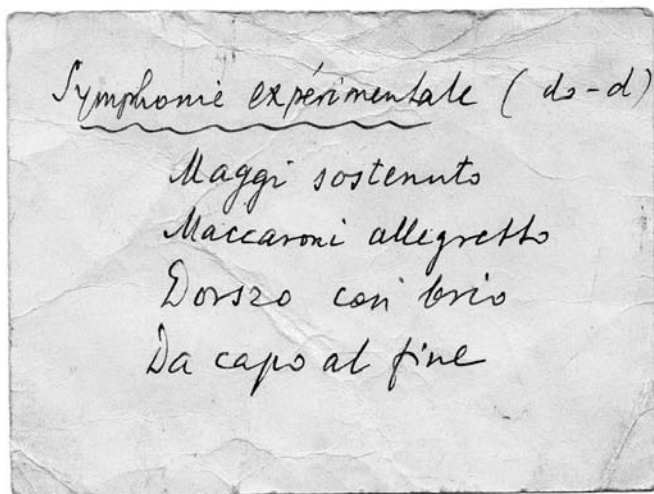 Symphonie expérimentale (do-d)
Maggi sostenuto
Maccaroni allegretto
Dorszo con brio
Da capo al fine